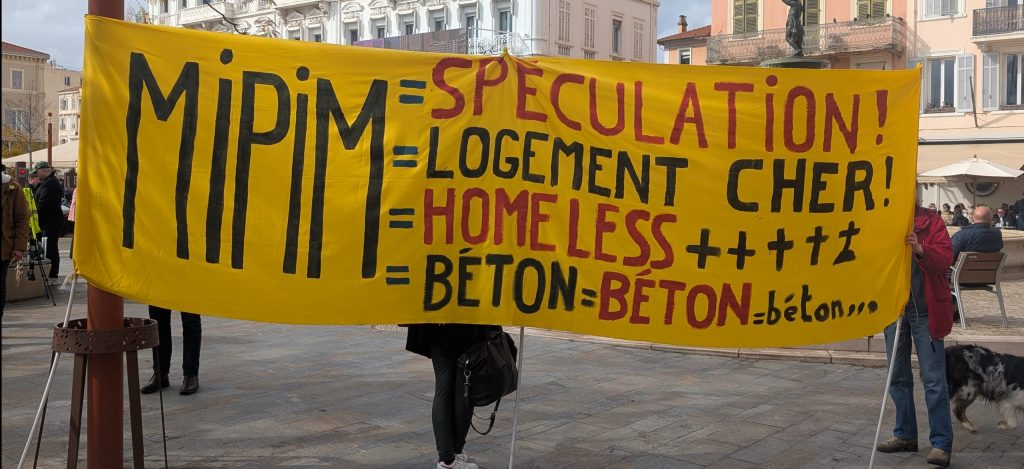 MiPiM = SPÉCULATION !
= LOGEMENT CHER !
= HOMELESS +++++
= BÉTON = BÉTON = béton...